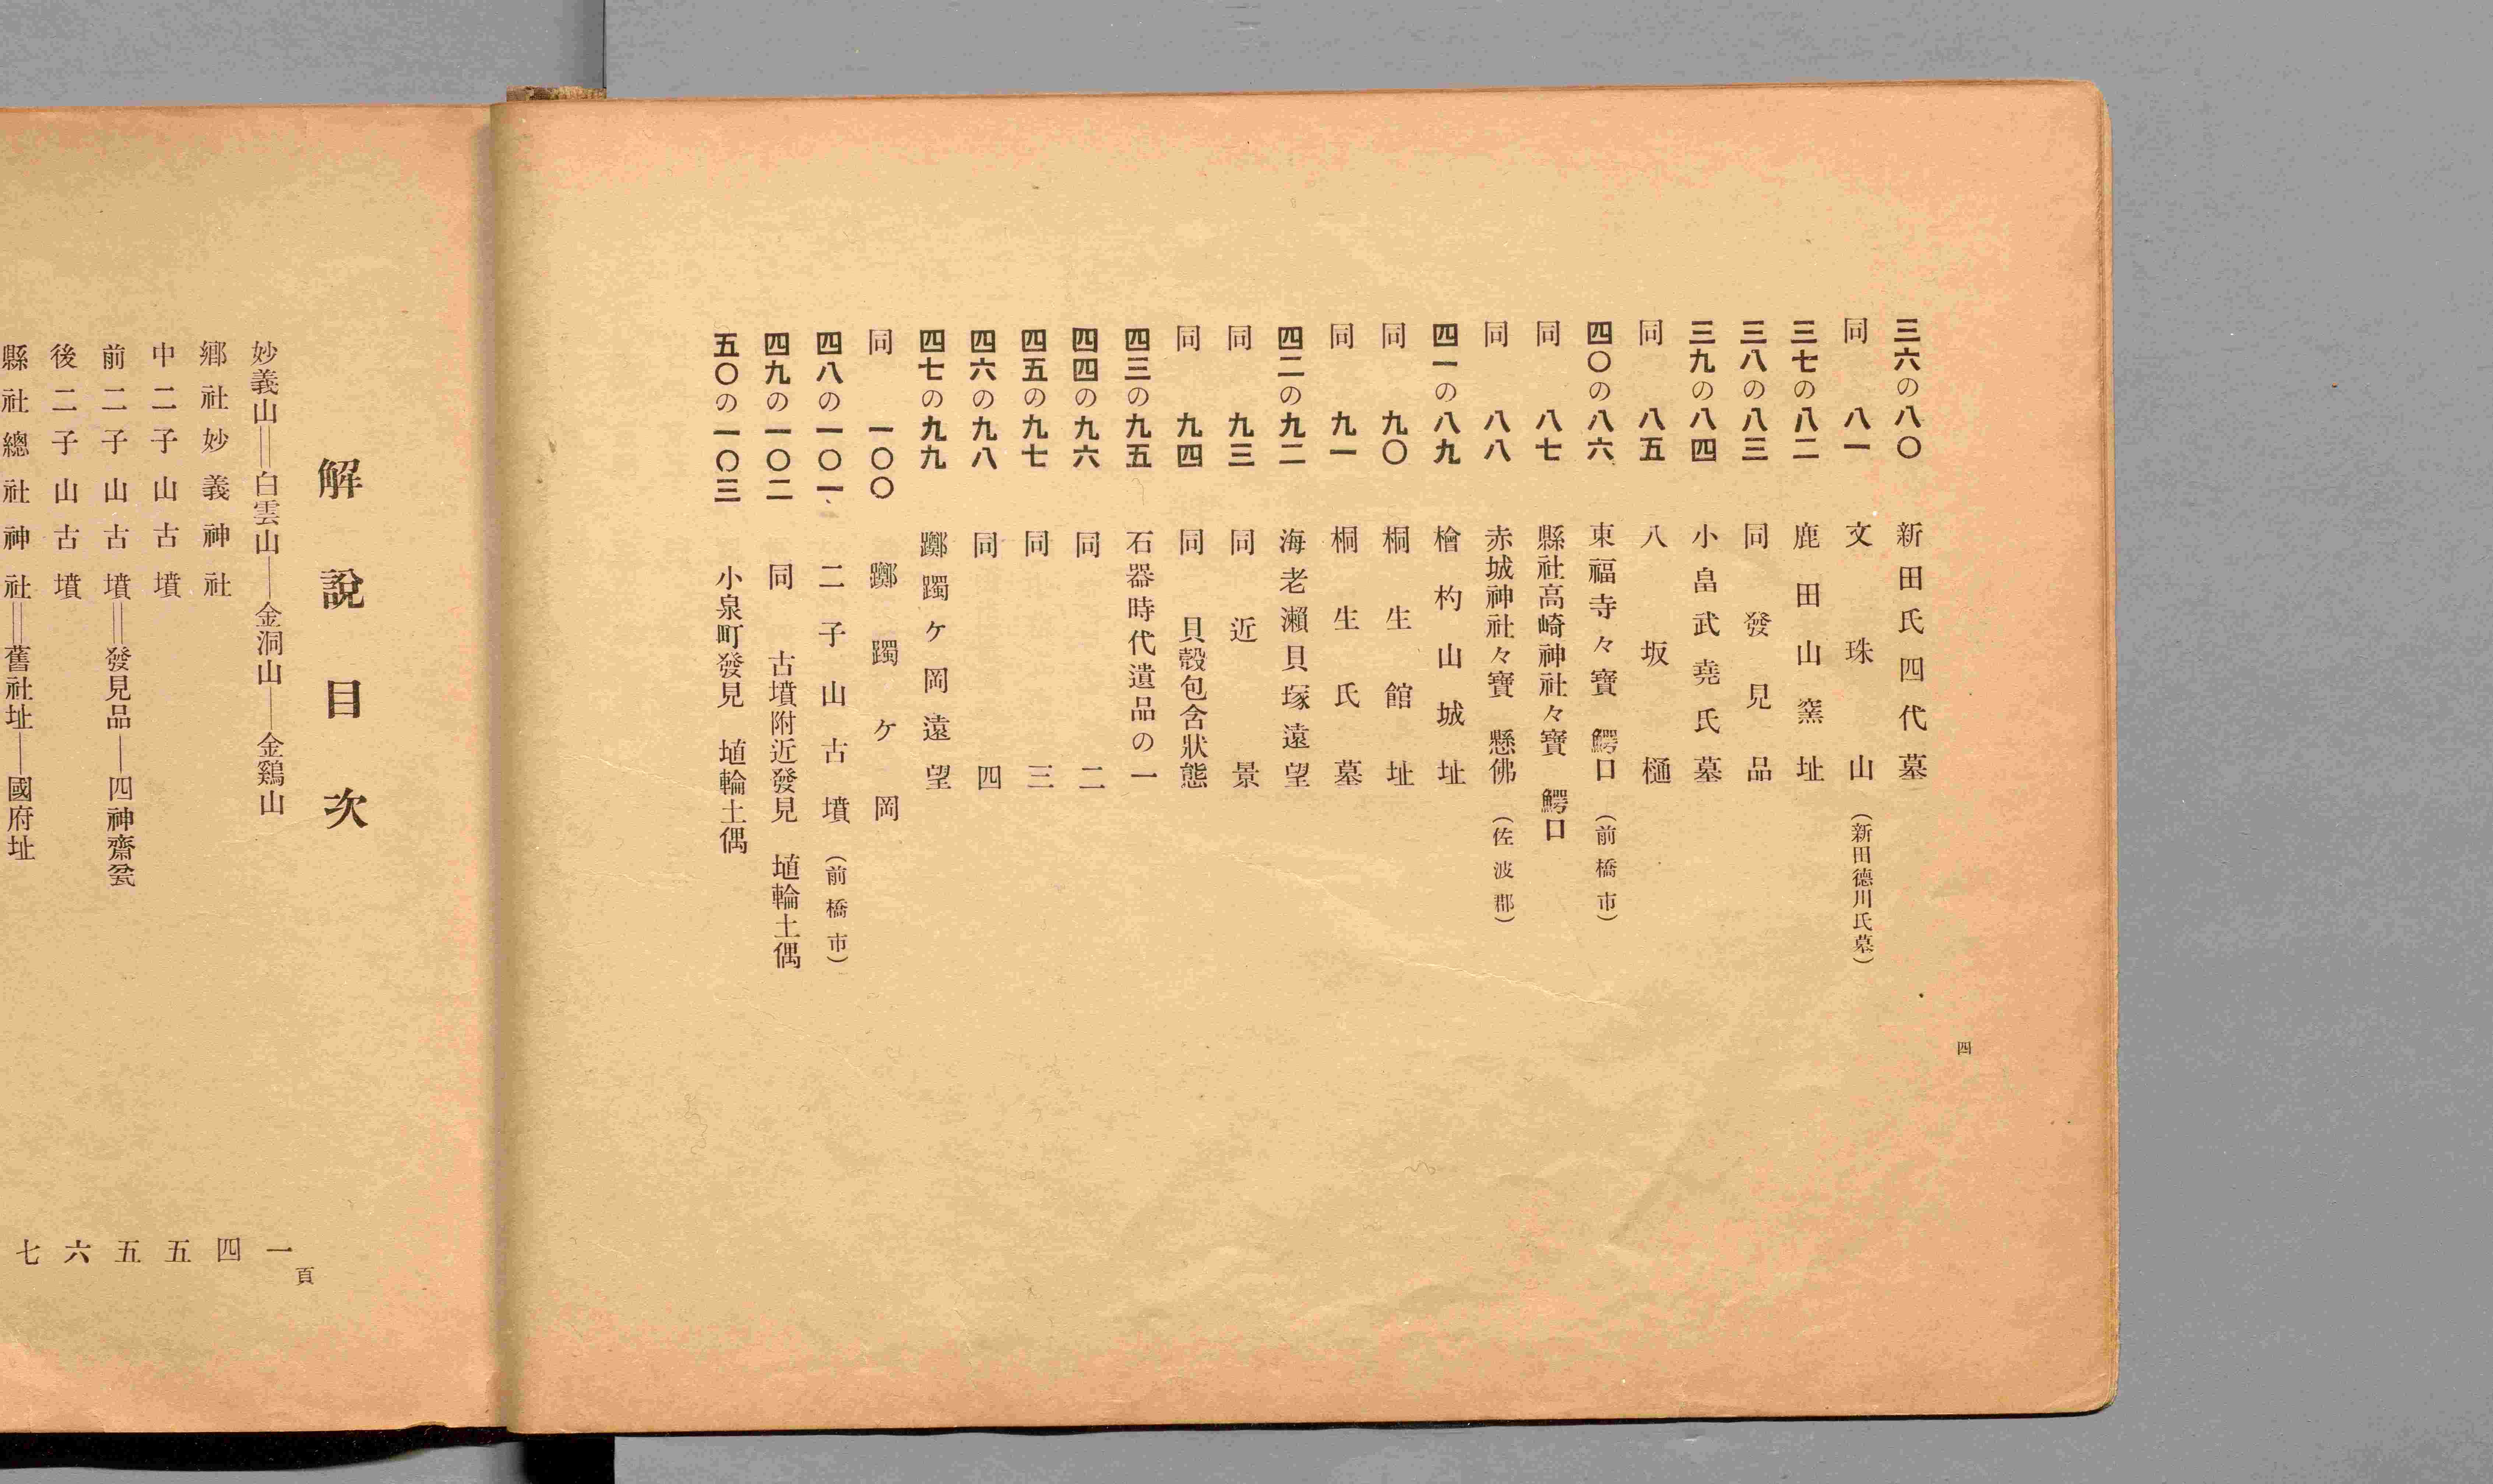 四
三六の八〇　新田氏四代墓
同　八一　文珠山（新田德川氏墓）
三七の八二　鹿田山窯址
三八の八三　同發見品
三九の八四　小畠武堯氏墓
同　八五　八坂樋
四〇の八六　東福寺々寶　鰐口（前橋市）
同　八七　縣社高崎神社々寶　鰐口
同　八八　赤城神社々寶　懸佛（佐波郡）
四一の八九　檜杓山城址
同　九〇　桐生館址
同　九一　桐生氏墓
四二の九二　海老瀨貝塚遠望
同　九三　同　近景
同　九四　同　貝殼包含狀態
四三の九五　石器時代遺品の一
四四の九六　同　二
四五の九七　同　三
四六の九八　同　四
四七の九九　躑躅ケ岡遠望
同　一〇〇　躑躅ケ岡
四八の一〇一　二子山古墳（前橋市）
四九の一〇二　同　古墳附近發見　埴輪土偶
五〇の一〇三　小泉町發見　埴輪土偶
解說目次
頁
妙義山＝白雲山―金洞山―金鷄山　一
鄉社妙義神社　四
中二子山古墳　五
前二子山古墳＝發見品―四神齋瓫　五
後二子山古墳　六
縣社總社神社＝舊社址―國府址　七